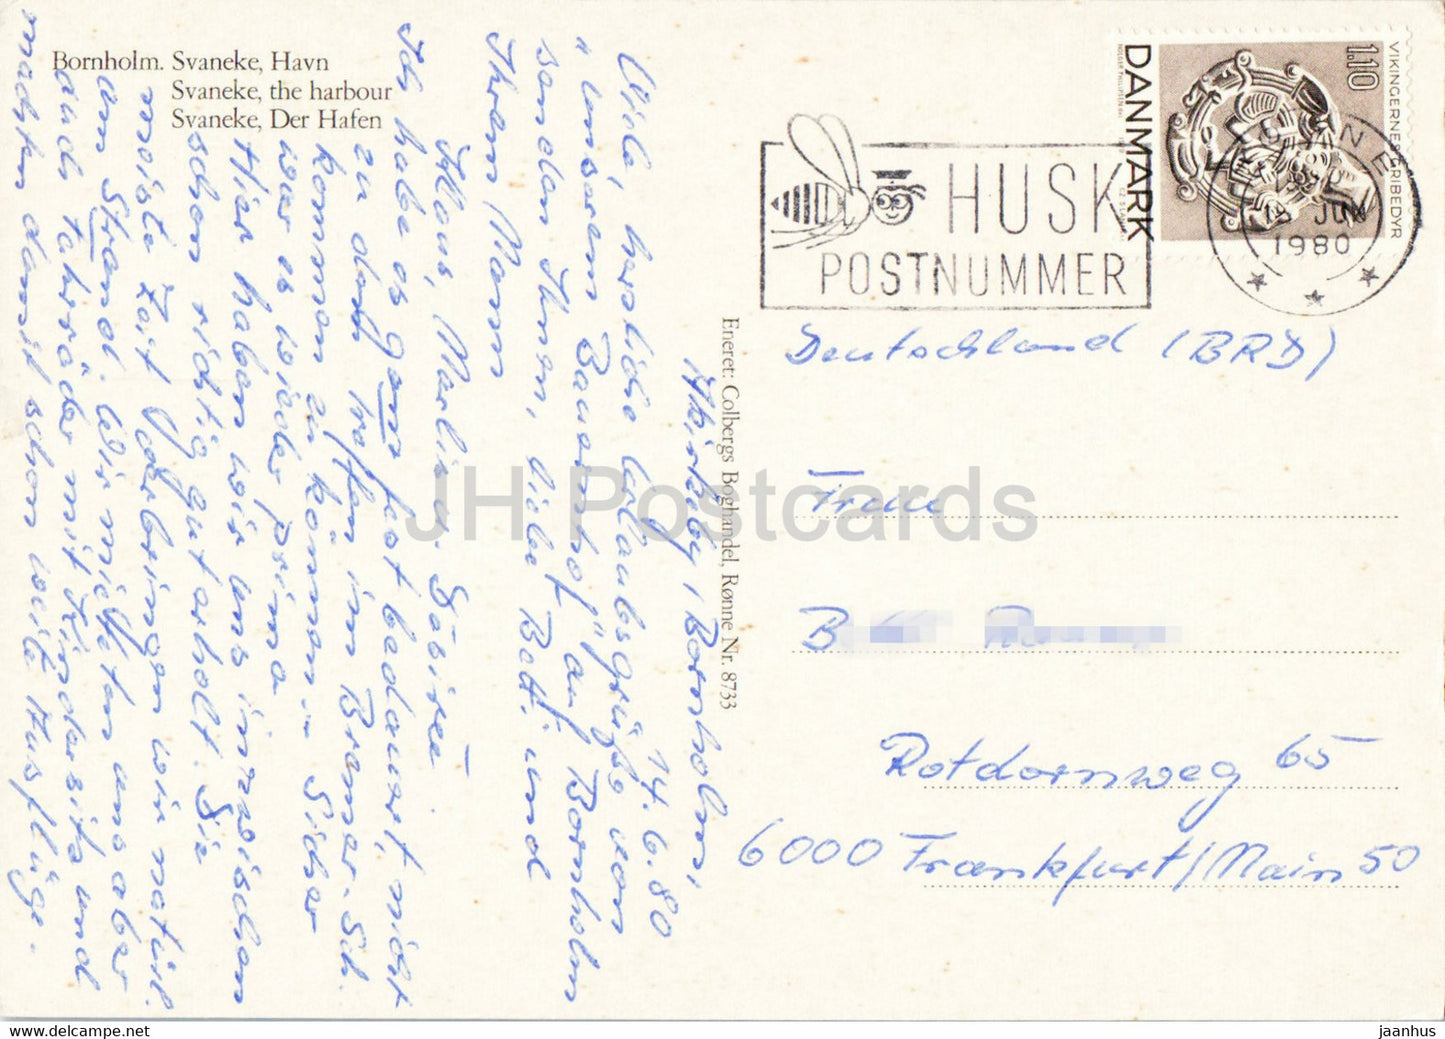 Bornholm. Svaneke, Havn
Svaneke, the harbour
Svaneke, Der Hafen
DANMARK
1.10
VIKINGERNES GRIBEDYR
HUSK
POSTNUMMER
RØNNE
JUN
1980
Eneret: Colbergs Boghandel, Rønne Nr. 8733
Åkirkeby, Bornholm,
14.6.80
Viele, herzliche Urlaubsgrüße von
"unserem Bauernhof" auf Bornholm
senden Ihnen, liebe Betti und
Ihrem Mann
Klaus, Marlies, Désirée
Ich habe es ganz fest bedauert, nicht
zu dem Treffen im Bremer-Sch.
kommen zu können. Sicher
war es wieder prima
Hier haben wir uns inzwischen
schon richtig gut erholt. Die
meiste Zeit verbringen wir natürl.
am Strand. Wir mieteten uns aber
auch Fahrräder mit Kindersitz und
machten damit schon weite Ausflüge.
Deutschland (BRD)
Frau
B
Rotdornweg 65
6000 Frankfurt/Main 50
JH Postcards
www.delcampe.net
jaanhus